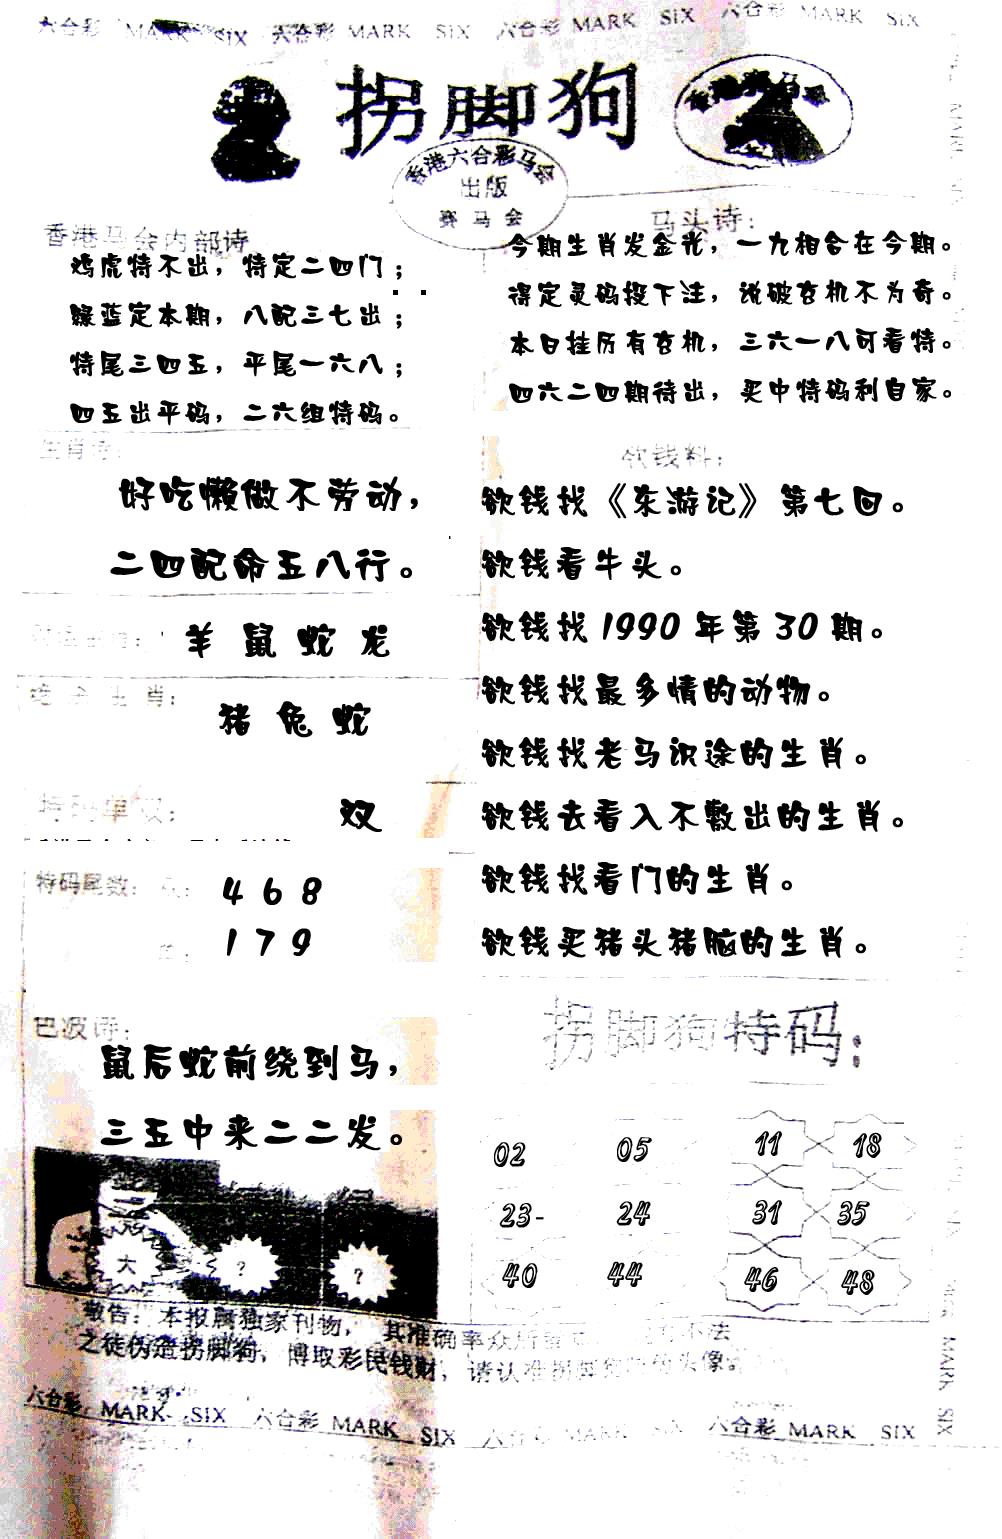 六合彩 MARK SIX 六合彩 MARK SIX 六合彩 MARK SIX 六合彩 MARK SIX
拐脚狗
香港六合彩马会
出版
赛马会
香港马会内部诗
鸡虎特不出，特定二四门；
绿蓝定本期，八配三七出；
特尾三四五，平尾一六八；
四五出平码，二六组特码。
马头诗：
今期生肖发金光，一九相合在今期。
得定灵码投下注，说破玄机不为奇。
本日挂历有玄机，三六一八可看特。
四六二四期待出，买中特码利自家。
生肖诗：
好吃懒做不劳动，
二四配命五八行。
羊 鼠 蛇 龙
生肖：
猪 兔 蛇
特码单双：
双
特码尾数：
4 6 8
1 7 9
欲钱料：
欲钱找《东游记》第七回。
欲钱看牛头。
欲钱找 1990 年第 30 期。
欲钱找最多情的动物。
欲钱找老马识途的生肖。
欲钱去看入不敷出的生肖。
欲钱找看门的生肖。
欲钱买猪头猪脑的生肖。
色波诗：
鼠后蛇前绕到马，
三五中来二二发。
大 ? ?
拐脚狗特码：
02 05 11 18
23- 24 31 35
40 44 46 48
敬告：本报属独家刊物，其准确率众所 不法
之徒伪造拐脚狗，博取彩民钱财，请认准拐脚 头像。
六合彩 MARK SIX 六合彩 MARK SIX 六合彩 MARK SIX 六合彩 MARK SIX
MARK SIX